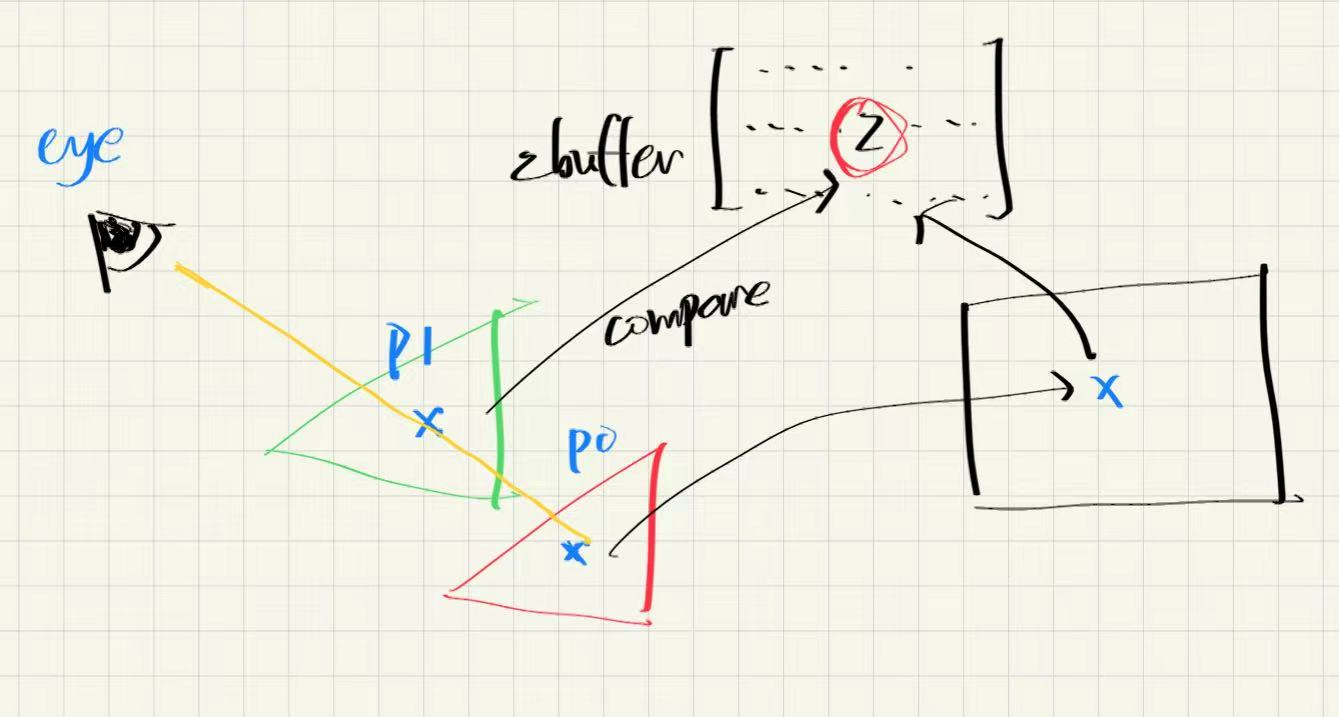 eye
zbuffer
Z
compare
p1
x
p0
x
x